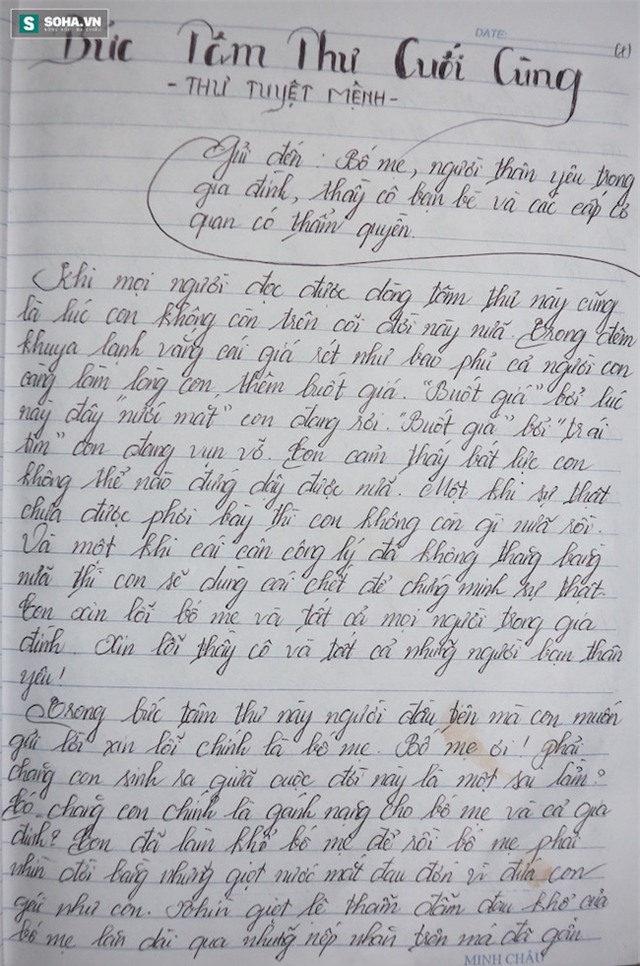 SOHA.VN
DATE:
(1)
Bức Tâm Thư Cuối Cùng
- THƯ TUYỆT MỆNH -
Gửi đến : Bố mẹ, người thân yêu trong
gia đình, thầy cô bạn bè và các cấp cơ
quan có thẩm quyền.
Khi mọi người đọc được dòng tâm thư này cũng
là lúc con không còn trên cõi đời này nữa. Trong đêm
khuya lạnh vắng cái giá rét như bao phủ cả người con
càng làm lòng con thêm buốt giá. "Buốt giá" bởi lúc
này đây "nước mắt" con đang rơi. "Buốt giá" bởi "trái
tim" con đang vụn vỡ. Con cảm thấy bất lực con
không thể nào đứng dậy được nữa. Một khi sự thật
chưa được phơi bày thì con không còn gì nữa rồi.
Và một khi cái cân công lý đã không thăng bằng
nữa thì con sẽ dùng cái chết để chứng minh sự thật.
Con xin lỗi bố mẹ và tất cả mọi người trong gia
đình. Xin lỗi thầy cô và tất cả những người bạn thân
yêu!
Trong bức tâm thư này người đầu tiên mà con muốn
gửi lời xin lỗi chính là bố mẹ. Bố mẹ ơi! Phải
chăng con sinh ra giữa cuộc đời này là một sai lầm?
Có chăng con chính là gánh nặng cho bố mẹ và cả gia
đình? Con đã làm khổ bố mẹ để rồi bố mẹ phải
nhìn đời bằng những giọt nước mắt đau đớn vì đứa con
gái như con. Nhìn giọt lệ thấm đẫm đau khổ của
bố mẹ lăn dài qua những nếp nhăn trên má đã gần
MINH CHÂU